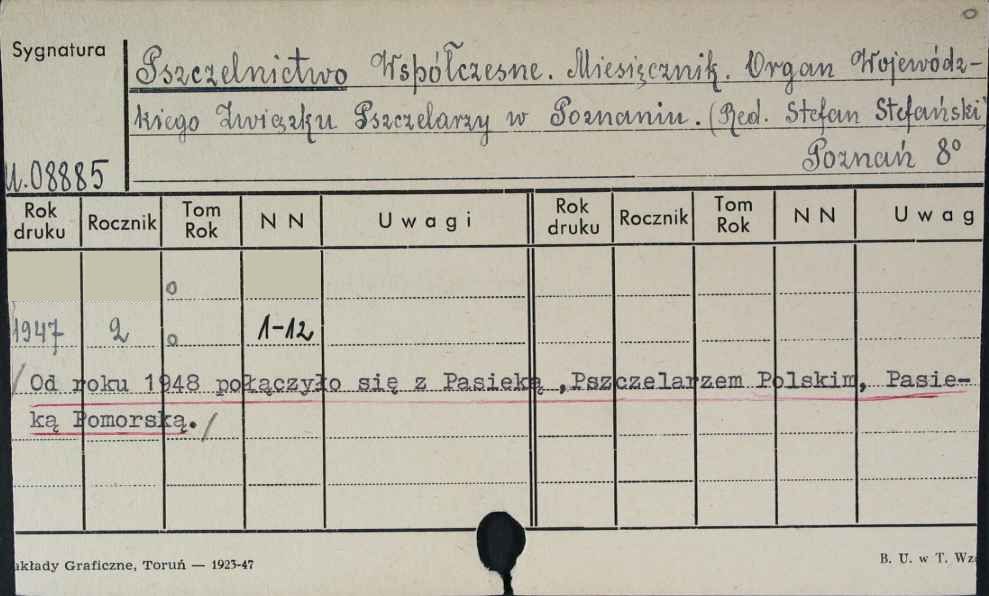 Sygnatura
Pszczelnictwo Współczesne. Miesięcznik. Organ Wojewódz-
kiego Związku Pszczelarzy w Poznaniu. (Red. Stefan Stefański)
Poznań 8°
U.08885
Rok druku Rocznik Tom Rok N N Uwagi Rok druku Rocznik Tom Rok N N Uwag
o
1947 2 o 1-12
/Od roku 1948 połączyło się z Pasieką ,Pszczelarzem Polskim, Pasie-
ką Pomorską./
akłady Graficzne, Toruń — 1923-47 B. U. w T. Wz